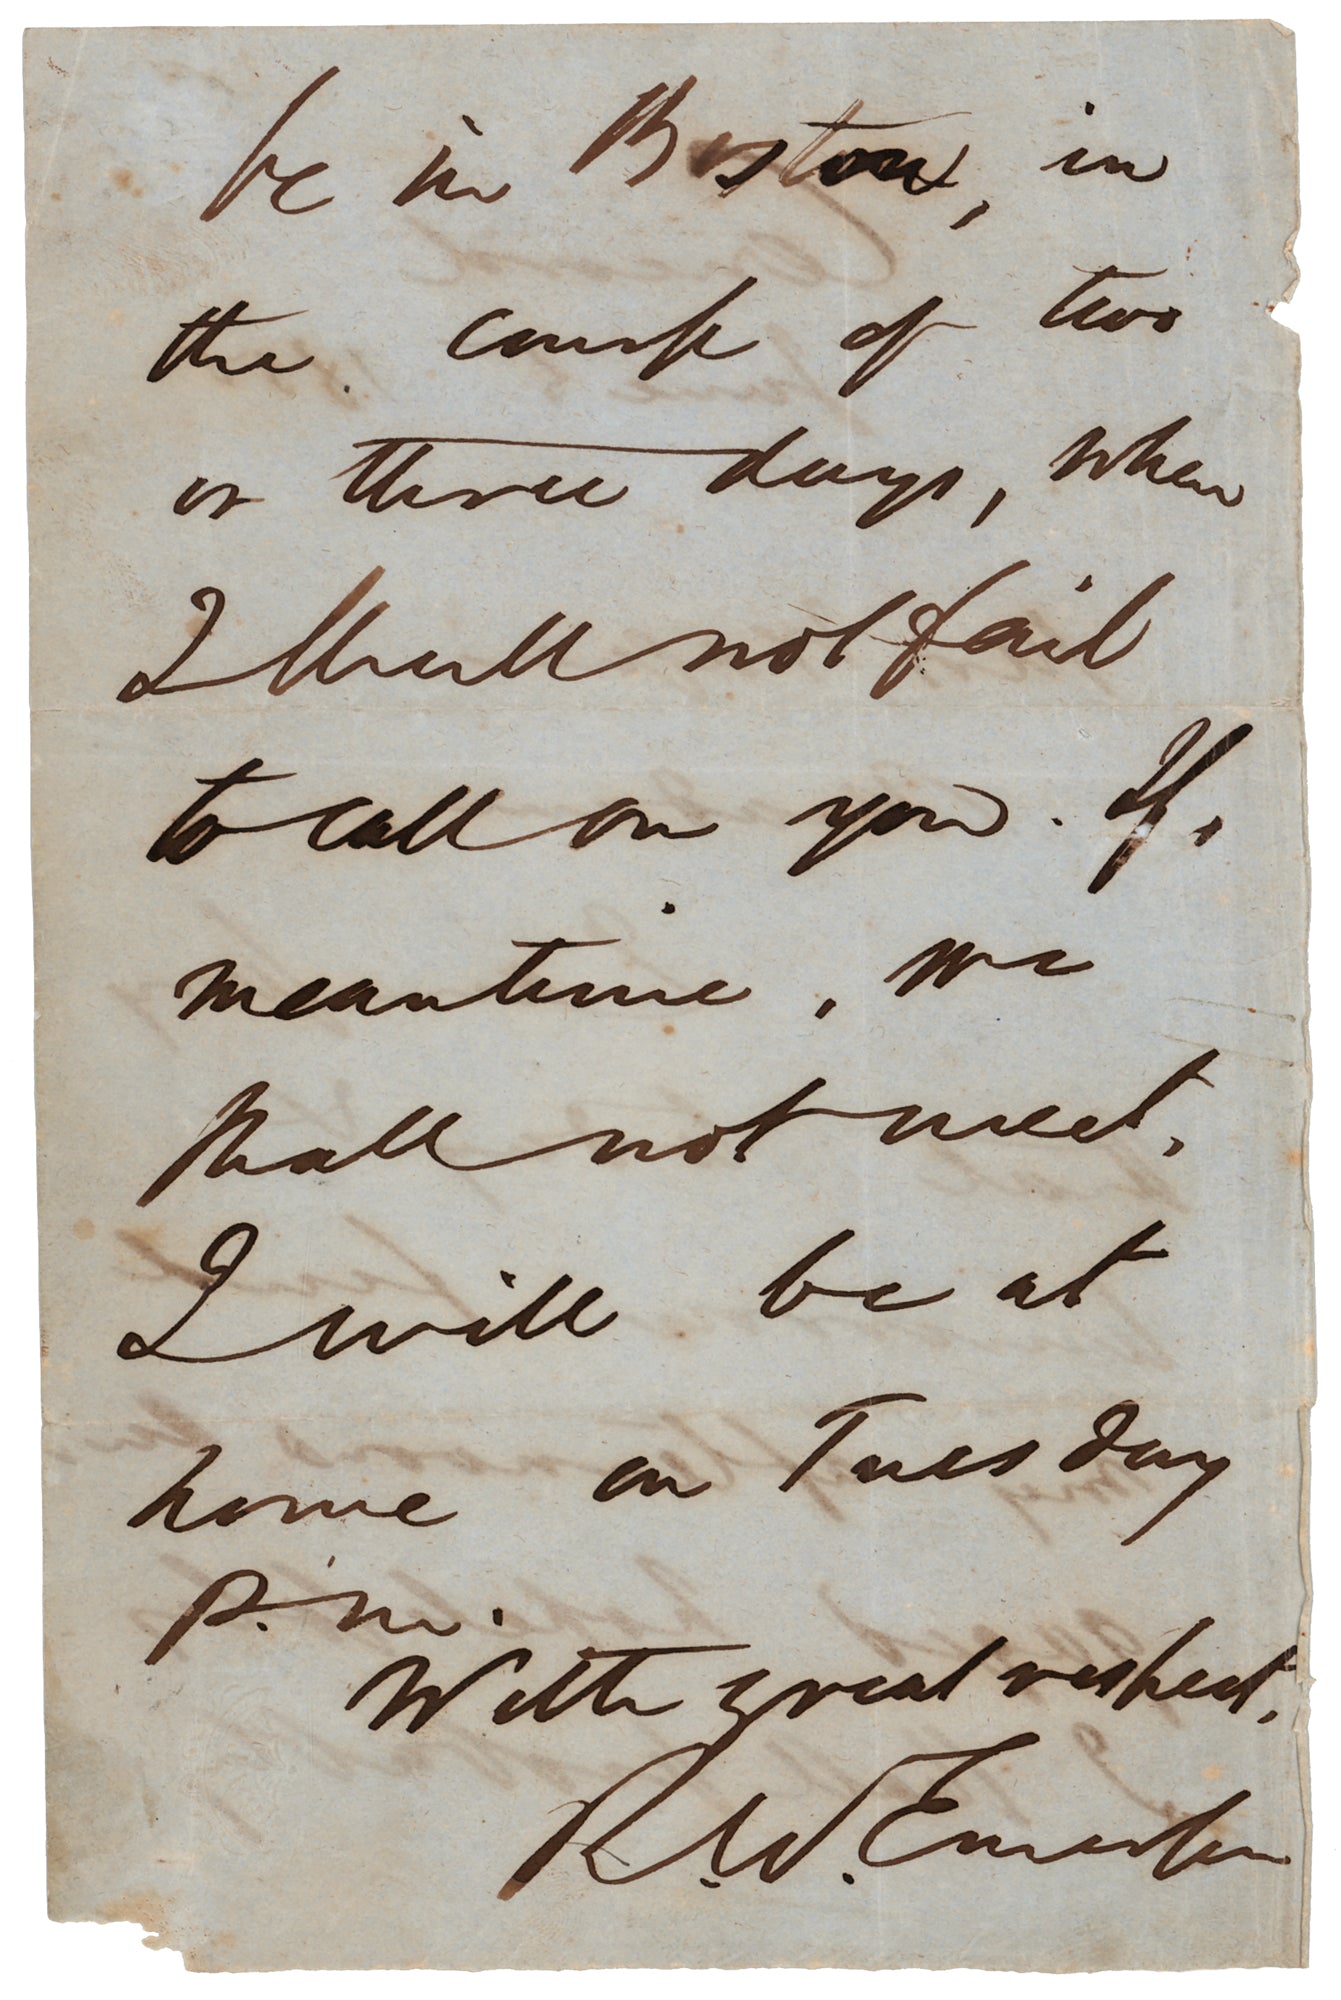 be in Boston, in
the course of two
or three days, when
I shall not fail
to call on you. If,
meantime, we
shall not meet,
I will be at
home on Tuesday
P.M.
With great respect,
R.W. Emerson